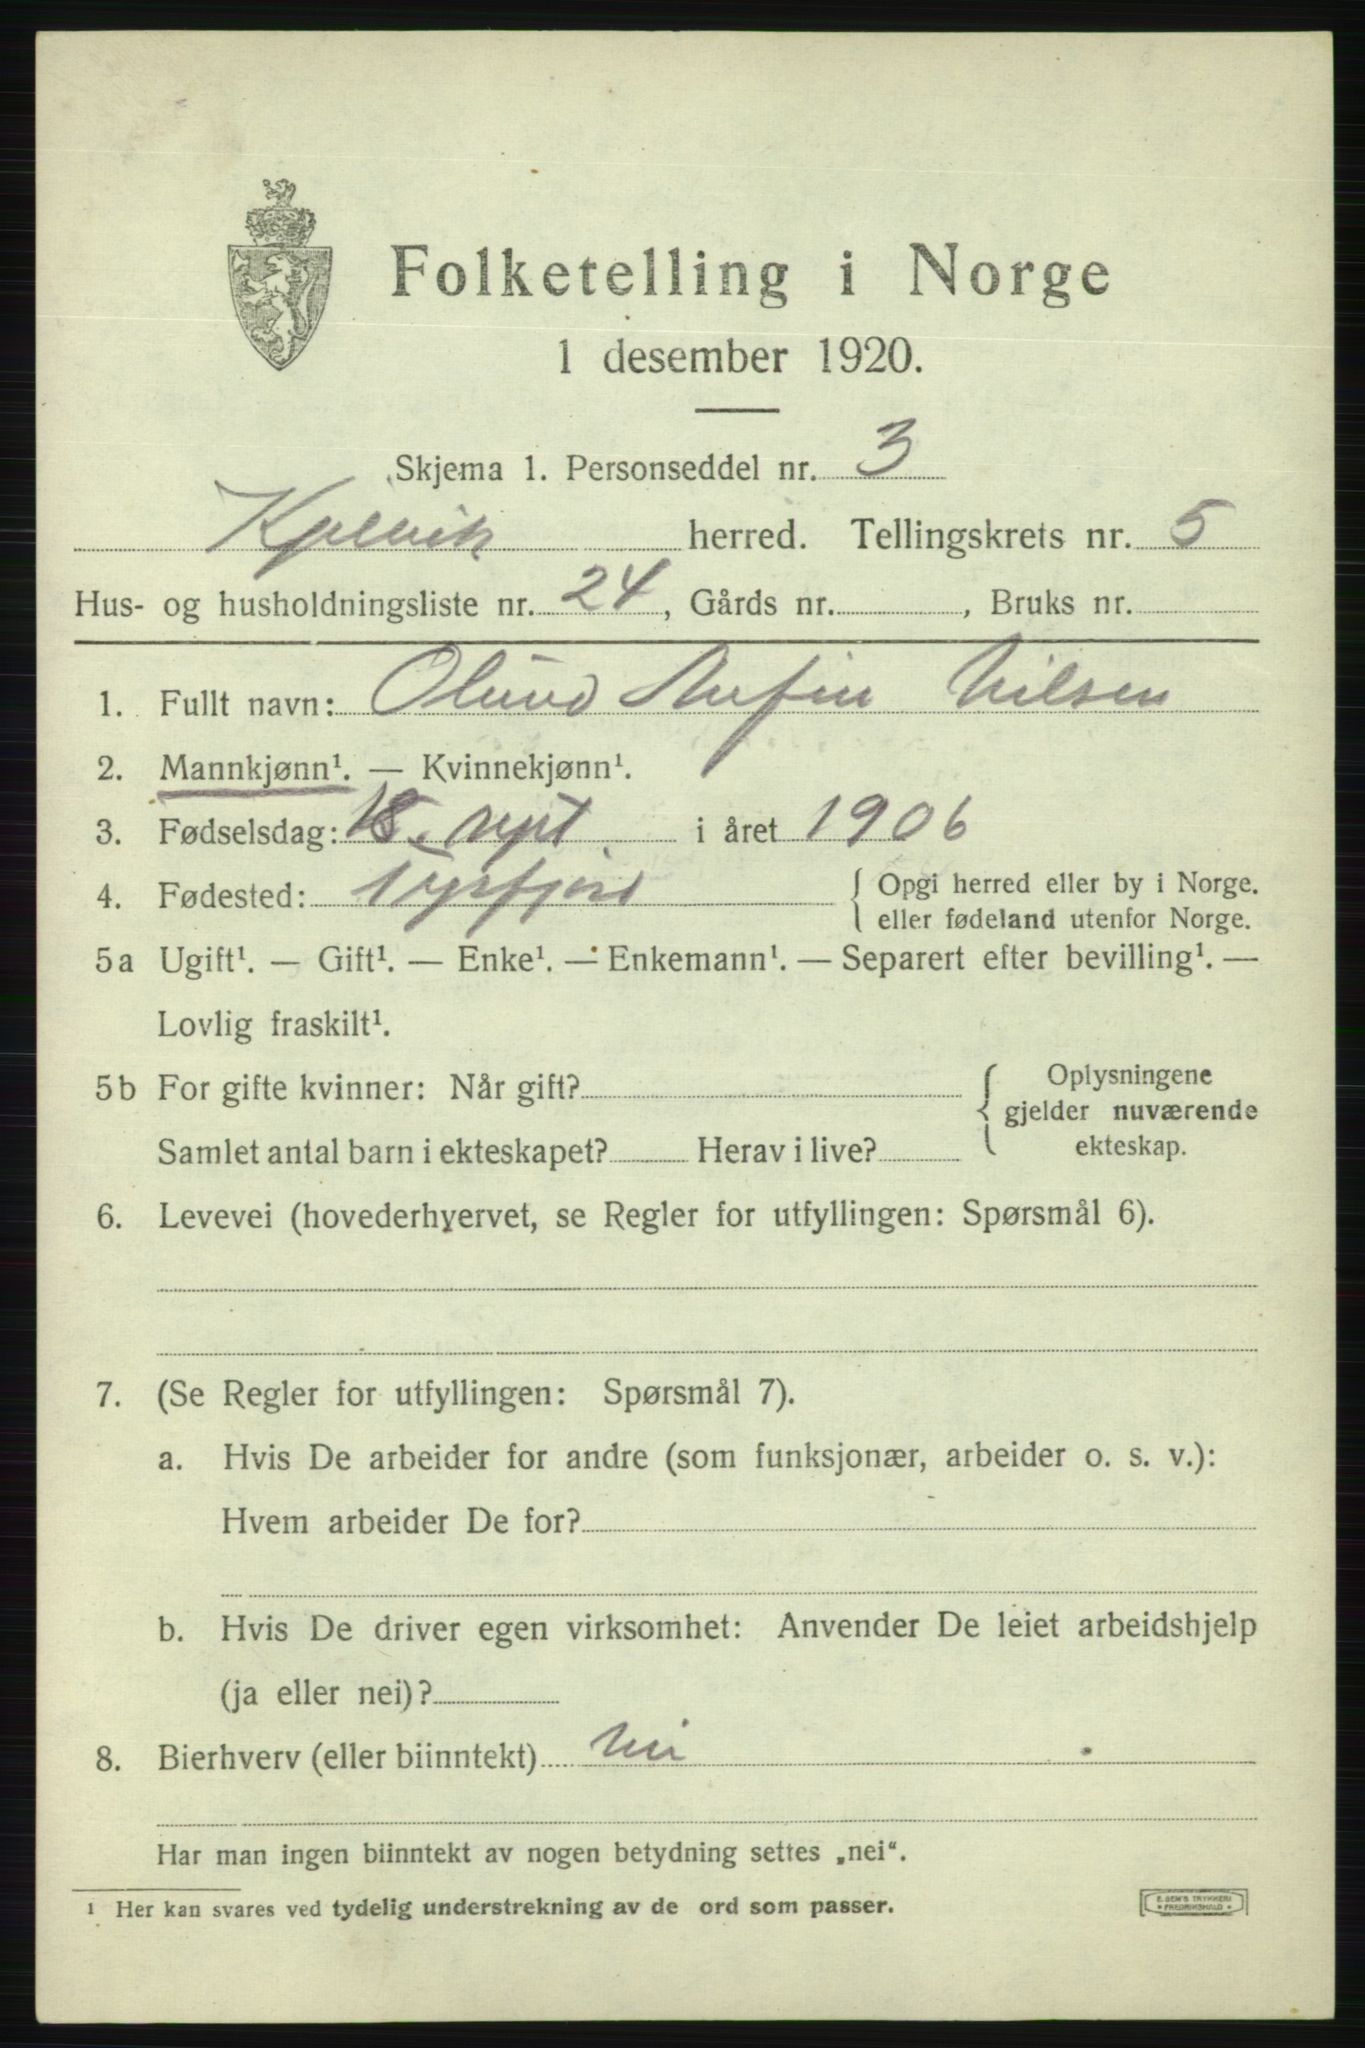 Folketelling i Norge
1 desember 1920.
Skjema 1. Personseddel nr. 3
Kjelvik herred. Tellingskrets nr. 5
Hus- og husholdningsliste nr. 24, Gårds nr. , Bruks nr.
1. Fullt navn: Nilsen
2. Mannkjønn¹. — Kvinnekjønn¹.
3. Fødselsdag: 18. sept i året 1906
4. Fødested: Tysfjord { Opgi herred eller by i Norge.
eller fødeland utenfor Norge.
5a Ugift¹. — Gift¹. — Enke¹. — Enkemann¹. — Separert efter bevilling¹. —
Lovlig fraskilt¹.
5b For gifte kvinner: Når gift? { Oplysningene
gjelder nuværende
Samlet antal barn i ekteskapet? Herav i live? ekteskap.
6. Levevei (hovederhyervet, se Regler for utfyllingen: Spørsmål 6).
7. (Se Regler for utfyllingen: Spørsmål 7).
a. Hvis De arbeider for andre (som funksjonær, arbeider o. s. v.):
Hvem arbeider De for?
b. Hvis De driver egen virksomhet: Anvender De leiet arbeidshjelp
(ja eller nei)?
8. Bierhverv (eller biinntekt) nei
Har man ingen biinntekt av nogen betydning settes „nei“.
¹ Her kan svares ved tydelig understrekning av de ord som passer.
E. SEM'S TRYKKERI
FREDRIKSHALD